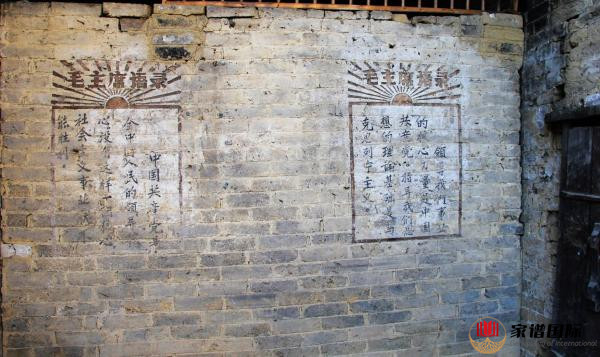 毛主席语录
中国共产党是
全中国人民的领导
心没有这样一个核心
社会主义事业就不
能胜利
毛主席语录
領导我們事业
的核心力量是中国
共产党指导我们思
想的理论基础是马
克思列宁主义
家谱国际